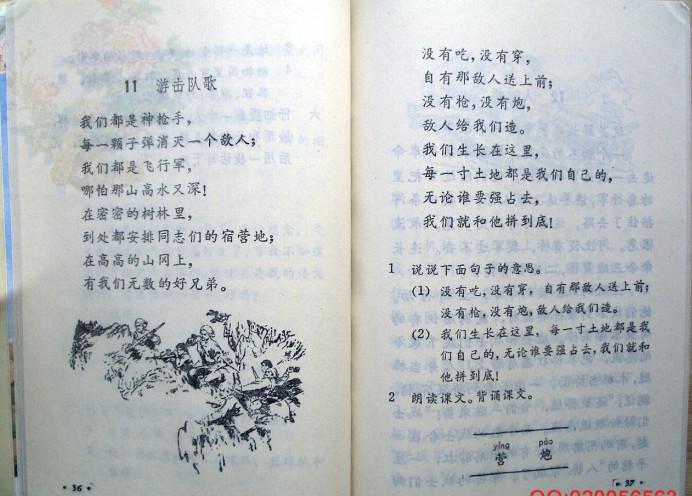 11 游击队歌
我们都是神枪手，
每一颗子弹消灭一个敌人；
我们都是飞行军，
哪怕那山高水又深！
在密密的树林里，
到处都安排同志们的宿营地；
在高高的山冈上，
有我们无数的好兄弟。
·36·
没有吃，没有穿，
自有那敌人送上前；
没有枪，没有炮，
敌人给我们造。
我们生长在这里，
每一寸土地都是我们自己的，
无论谁要强占去，
我们就和他拼到底！
1 说说下面句子的意思。
(1) 没有吃，没有穿，自有那敌人送上前；
没有枪，没有炮，敌人给我们造。
(2) 我们生长在这里，每一寸土地都是我
们自己的，无论谁要强占去，我们就和
他拼到底！
2 朗读课文。背诵课文。
yíng pào
营 炮
·37·